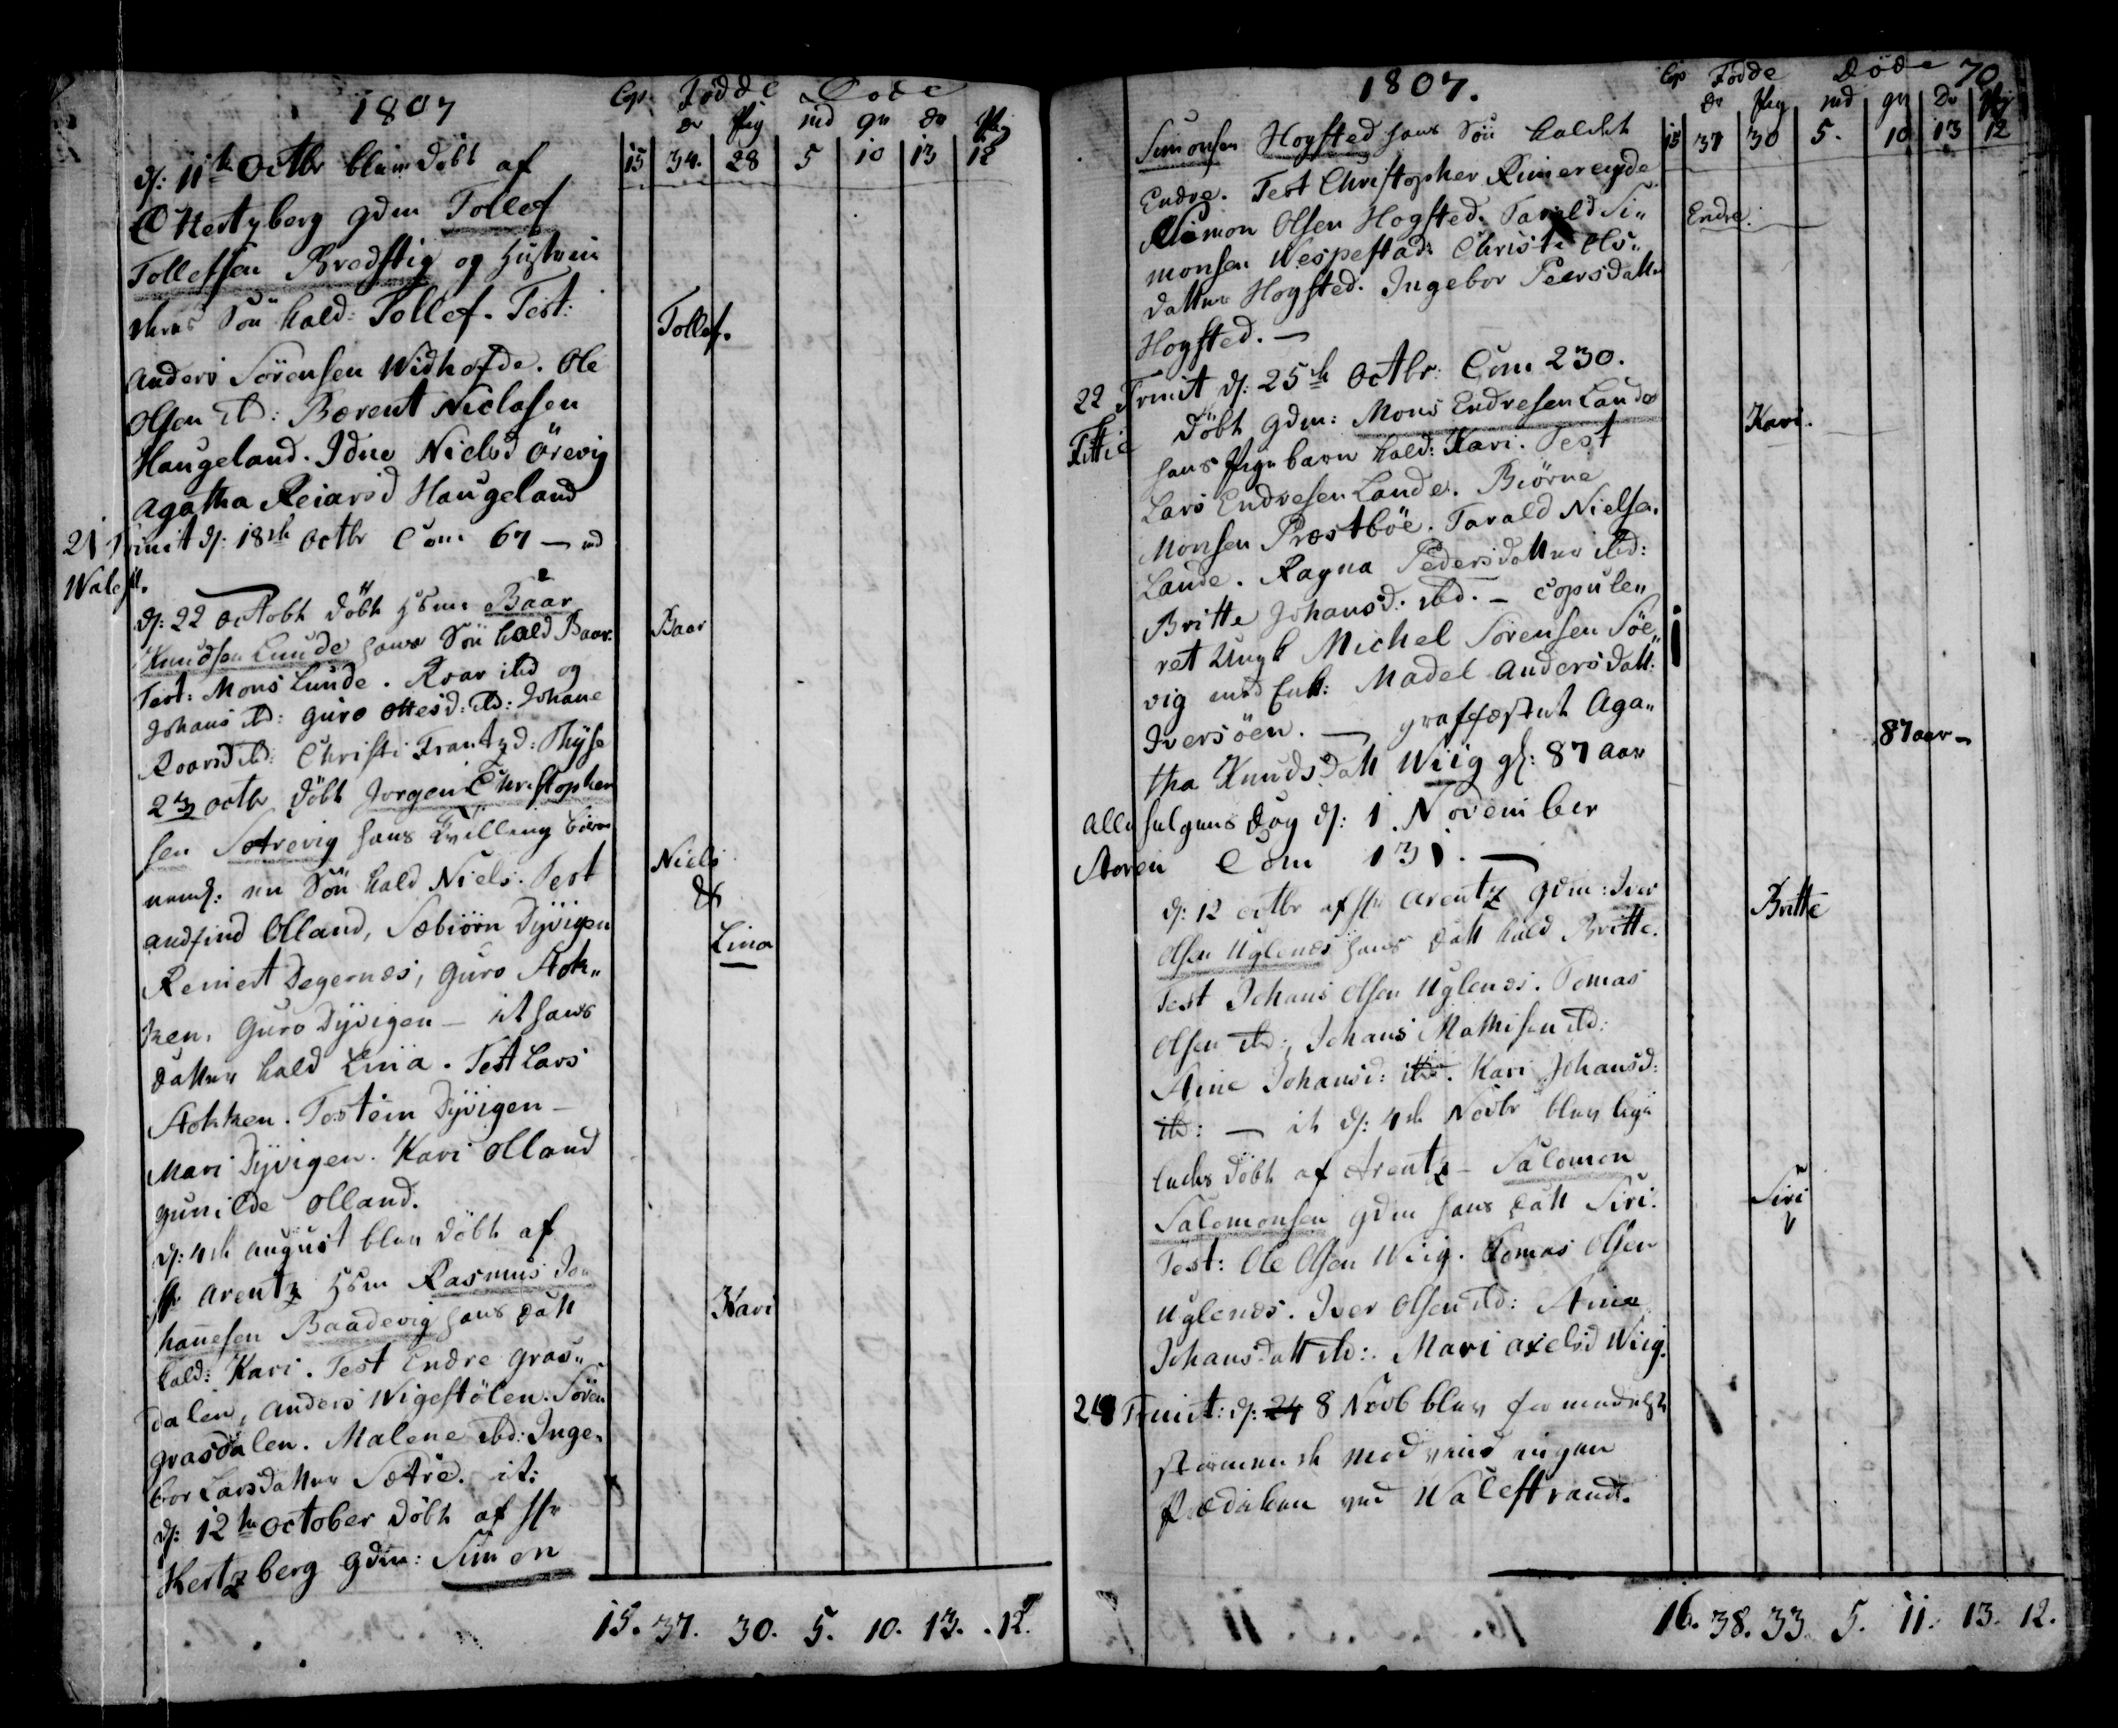 1807
Cop Födde Döde
Dr Pig Md Qv Dr Pig
15 34. 28 5 10 13 12
d: 11te Octbr blev döbt af
C Hertzberg gdm Tollef
Tollefsen Bredstig og Hustrues
deres Sön kald: Tollef. Test:
Tollef.
Anders Sörensen Widhofde. Ole
Olsen ibd: Berent Niclasen
Haugeland. Idne Nielsd Örevig
Agatha Reiarsd Haugeland
21 Trinit d: 18de Octbr Com 67 —
Walest.
d: 22 Octobr döbt Hsm Baar
Knudsen Lunde hans Sön kald Baar
Baar
Test: Mons Lunde. Roar ibd og
Johans ibd: Guro Ottesd: ibd: Johane
Roarsd ibd: Christi Frantzd: Thyse
23 Octbr döbt Jorgen Christopher
sen Sætrevig hans Tvilling börn
neml: en Sön kald Niels. Test
Niels
&
Andfind Olland, Sæbiörn Dyvigen
Lina
Reinert Degernes, Guro Stok„
ken, Guro Dyvigen — it hans
Datter kald Lina. Test Lars
Stokken. Tostein Dyvigen —
Mari Dyvigen. Kari Olland
Gunilde Olland.
d: 4de August blev döbt af
Hr Arentz Hsm Rasmus Jo„
hanesen Baadevig hans Datt
Kari
kald: Kari. Test Endre Gras„
dalen, Anders Wigestölen. Sören
Grasdalen. Malene ibd: Inge„
bor Larsdatter Sætre. it:
d: 12te October döbt af Hr
Hertzberg Gdm: Simon
15. 37. 30. 5. 10. 13. 12.
1807.
70
Cop Födde Döde
Dr Pig Md Qv Dr Pig
15 37 30 5. 10 13 12
Simonsen Hogsted hans Sön kaldet
Endre. Test Christopher Rimereide
Endre.
Simon Olsen Hogsted. Tarald Si„
monsen Wespestad: Christi Ols„
datter Hogsted. Ingebor Peersdatter
Hogsted. —
22 Trinit d: 25de Octbr: Com 230.
Fittie
döbt Gdm: Mons Endresen Lande
Kari.
hans Pigebarn kald: Kari. Test
Lars Endresen Lande. Biörne
Monsen Præstböe. Tarald Nielsen
Lande. Ragna Pedersdatter ibd:
Britte Johansd: ibd. — Copule„
ret Ungk Michel Sörensen Söe„
1
vig med Enk: Madel Andersdatt:
Iversöen. — Graffæstet Aga„
87 aar —
tha Knudsdatt Wiig gl: 87 Aar
Alle helgens Dag d: 1. November
Storen Com 131. —
d: 12 Octbr af Hr Arentz Gdm: Iver
Britte
Olsen Uglenes hans Datt kald Britte.
Test Johans Olsen Uglenes. Tomas
Olsen ibd:, Johans Mathisen ibd:
Ane Johansd: ibd. Kari Johansd:
ibd: — it d: 4de Novbr blev lige
ledes döbt af Arentz — Salomon
Salomonsen gdm hans Datt Siri.
Siri
Test: Ole Olsen Wiig. Tomas Olsen
Uglenes. Iver Olsen ibd: Ane
Johansdatt ibd:. Mari Axelsd Wiig.
24 Trinit: d: 24 8 Novb blev formedelst
stormende Modvind ingen
Prædiken ved Walestrand.
16. 38. 33. 5. 11. 13. 12.